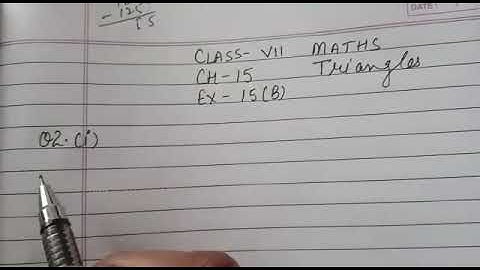 - 125
15
DATE:
CLASS- VII MATHS
CH-15 Triangles
EX- 15(B)
Q2.(i)